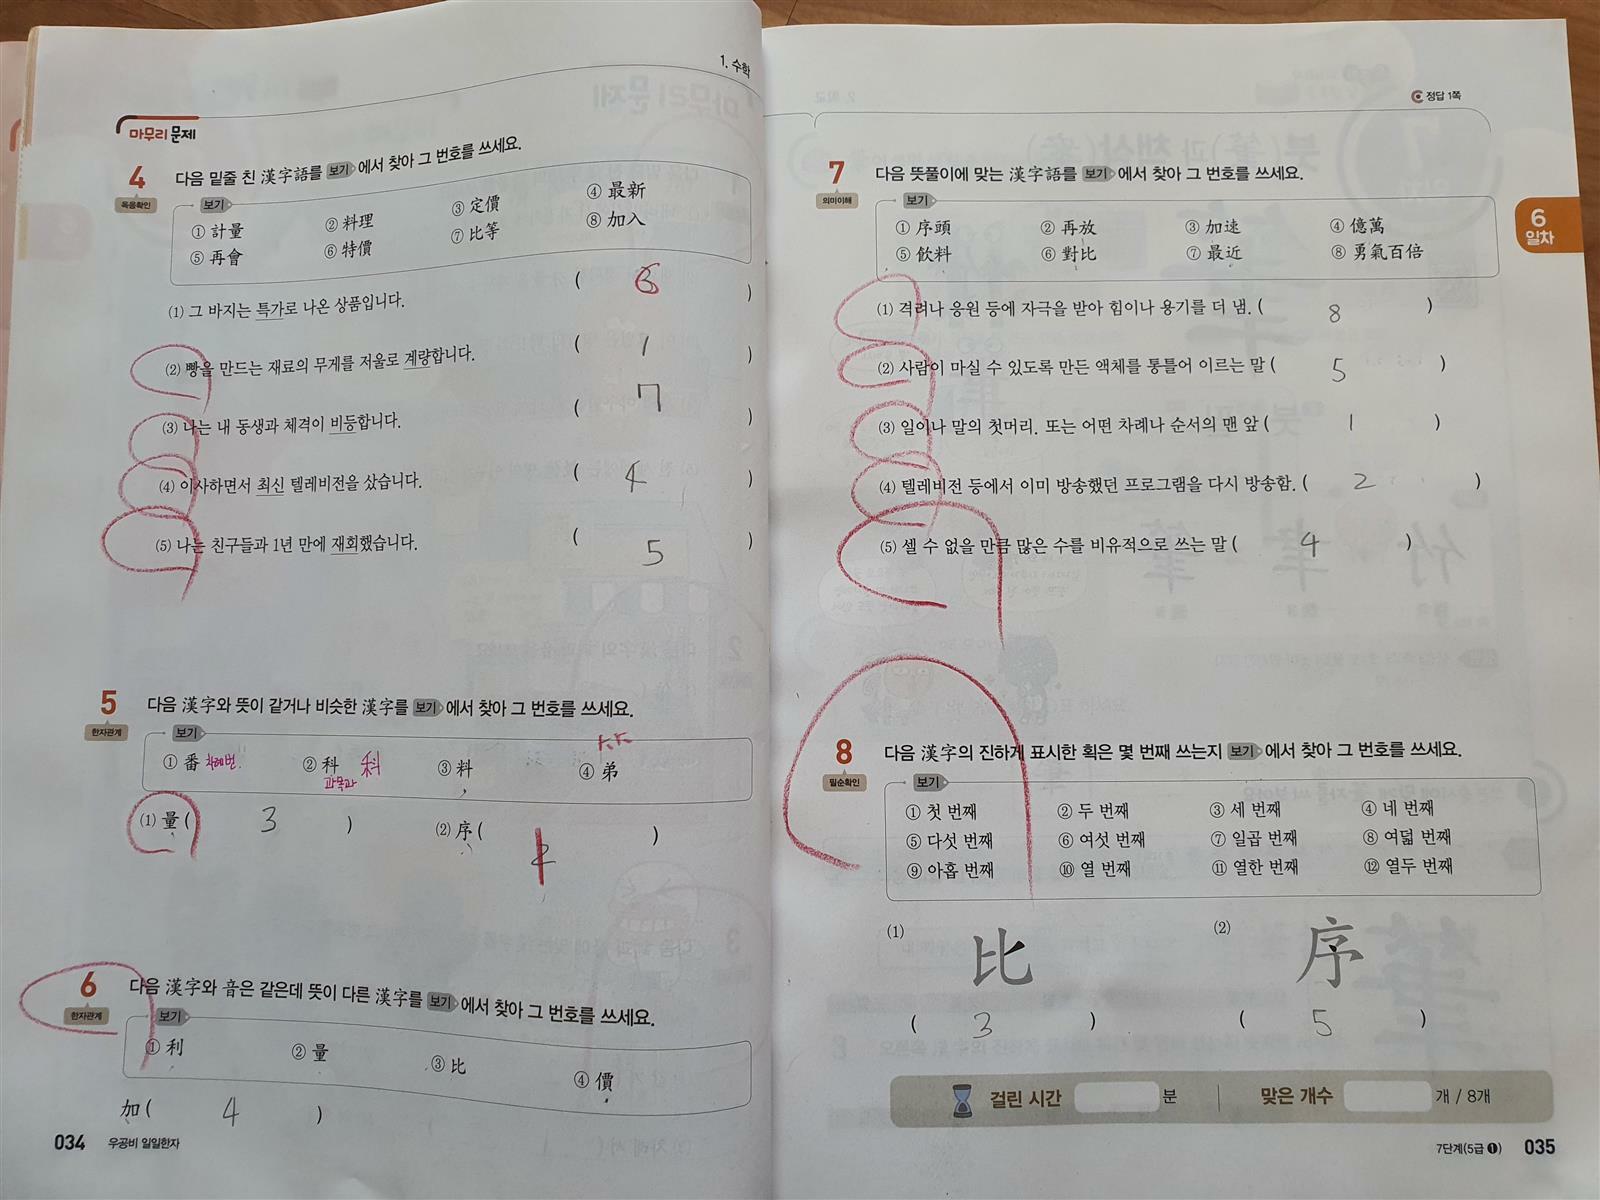 1. 수학
마무리 문제
4 다음 밑줄 친 漢字語를 보기 에서 찾아 그 번호를 쓰세요.
독음확인
보기
① 計量 ② 料理 ③ 定價 ④ 最新
⑤ 再會 ⑥ 特價 ⑦ 比等 ⑧ 加入
(1) 그 바지는 특가로 나온 상품입니다. ( 6 )
(2) 빵을 만드는 재료의 무게를 저울로 계량합니다. ( 1 )
(3) 나는 내 동생과 체격이 비등합니다. ( 7 )
(4) 이사하면서 최신 텔레비전을 샀습니다. ( 4 )
(5) 나는 친구들과 1년 만에 재회했습니다. ( 5 )
5 다음 漢字와 뜻이 같거나 비슷한 漢字를 보기 에서 찾아 그 번호를 쓰세요.
한자관계
보기
① 番 차례번 ② 科 科 ③ 料 ④ 弟
과목과
(1) 量 ( 3 ) (2) 序 ( )
6 다음 漢字와 音은 같은데 뜻이 다른 漢字를 보기 에서 찾아 그 번호를 쓰세요.
한자관계
보기
① 利 ② 量 ③ 比 ④ 價
加 ( 4 )
034 우공비 일일한자
정답 1쪽
6일차
7 다음 뜻풀이에 맞는 漢字語를 보기 에서 찾아 그 번호를 쓰세요.
의미이해
보기
① 序頭 ② 再放 ③ 加速 ④ 億萬
⑤ 飮料 ⑥ 對比 ⑦ 最近 ⑧ 勇氣百倍
(1) 격려나 응원 등에 자극을 받아 힘이나 용기를 더 냄. ( 8 )
(2) 사람이 마실 수 있도록 만든 액체를 통틀어 이르는 말 ( 5 )
(3) 일이나 말의 첫머리. 또는 어떤 차례나 순서의 맨 앞 ( 1 )
(4) 텔레비전 등에서 이미 방송했던 프로그램을 다시 방송함. ( 2 )
(5) 셀 수 없을 만큼 많은 수를 비유적으로 쓰는 말 ( 4 )
8 다음 漢字의 진하게 표시한 획은 몇 번째 쓰는지 보기 에서 찾아 그 번호를 쓰세요.
필순확인
보기
① 첫 번째 ② 두 번째 ③ 세 번째 ④ 네 번째
⑤ 다섯 번째 ⑥ 여섯 번째 ⑦ 일곱 번째 ⑧ 여덟 번째
⑨ 아홉 번째 ⑩ 열 번째 ⑪ 열한 번째 ⑫ 열두 번째
(1) 比 (2) 序
( 3 ) ( 5 )
걸린 시간 분 맞은 개수 개 / 8개
7단계(5급 ❶) 035